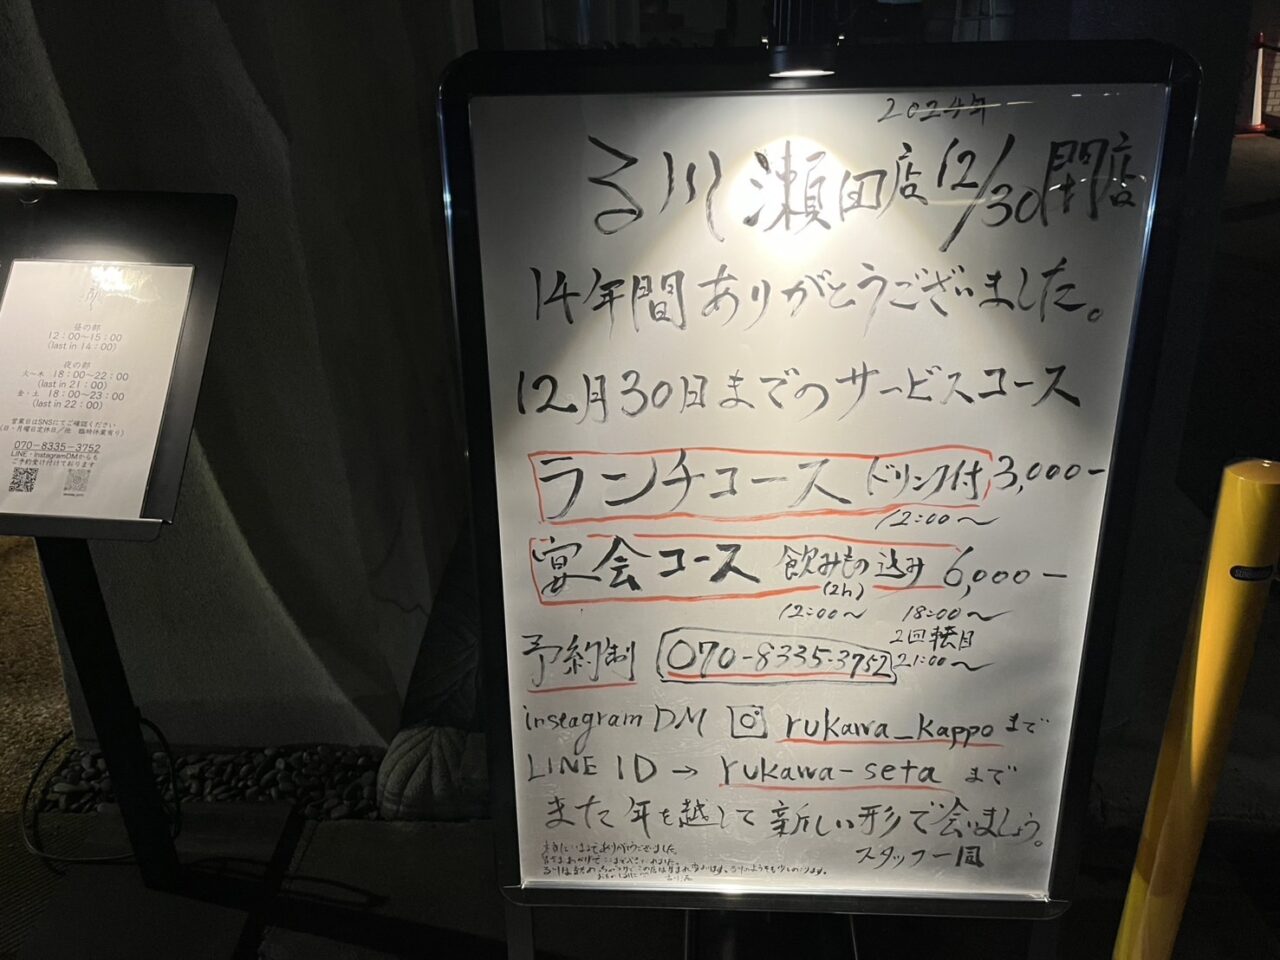 2024年
る川 瀬田店 12/30 閉店
14年間ありがとうございました。
12月30日までのサービスコース
ランチコース ドリンク付 3,000-
12:00〜
宴会コース 飲みもの込み 6,000-
(2h)
12:00〜 18:00〜
2回転目
予約制 070-8335-3752 21:00〜
instagram DM rukawa_kappo まで
LINE ID → rukawa-seta まで
また年を越して新しい形で会いましょう。
スタッフ一同
昼の部
12：00〜15：00
(last in 14：00)
夜の部
火〜木 18：00〜22：00
(last in 21：00)
金・土 18：00〜23：00
(last in 22：00)
営業日はSNSにてご確認ください
(日・月曜日定休日／他 臨時休業有り)
070-8335-3752
LINE・InstagramDMからも
ご予約受け付けております